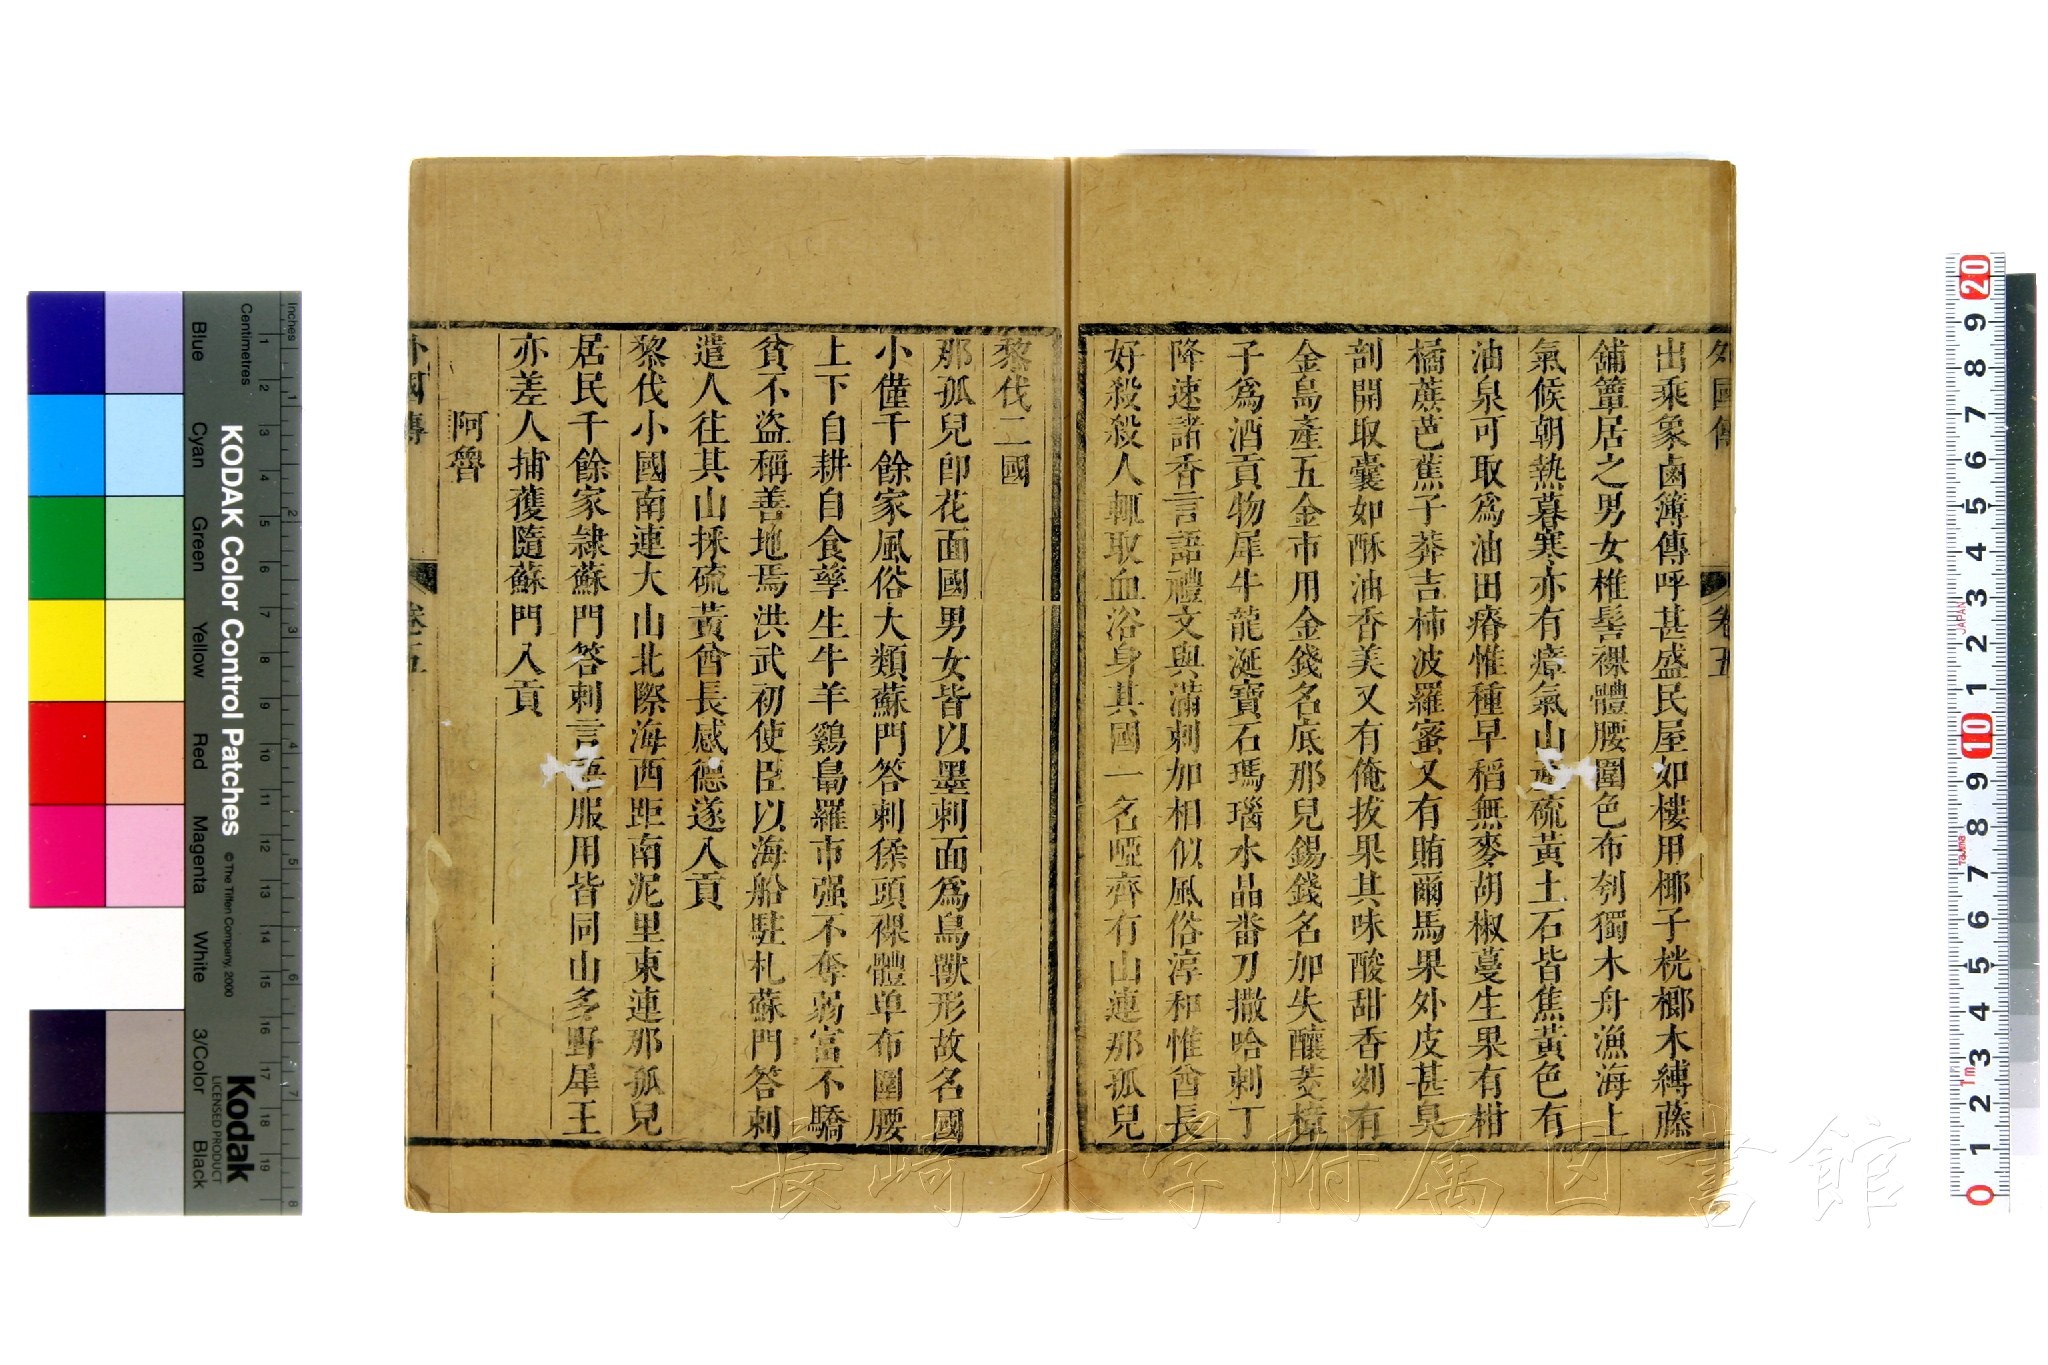 外國傳
卷五
出乘象鹵簿傳呼甚盛民屋如樓用椰子桄榔木縛藤
鋪簟居之男女椎髻裸體腰圍色布刳獨木舟漁海上
氣候朝熱暮寒亦有瘴氣山產硫黃土石皆焦黃色有
油泉可取爲油田瘠惟種早稻無麥胡椒蔓生果有柑
橘蔗芭蕉子莽吉柿波羅蜜又有賄爾馬果外皮甚臭
剖開取囊如酥油香美又有俺拔果其味酸甜香烈有
金島產五金市用金錢名底那兒錫錢名加失釀茭樟
子爲酒貢物犀牛龍涎寶石瑪瑙水晶番刀撒哈剌丁
降速諸香言語禮文與滿剌加相似風俗淳和惟酋長
好殺殺人輒取血浴身其國一名啞齊有山連那孤兒
黎伐二國
那孤兒卽花面國男女皆以墨刺面爲鳥獸形故名國
小僅千餘家風俗大類蘇門答剌猱頭裸體单布圍腰
上下自耕自食孳生牛羊鷄鳧羅市强不奪弱富不驕
貧不盗稱善地焉洪武初使臣以海船駐札蘇門答剌
遣人往其山採硫黃酋長感德遂入貢
黎伐小國南連大山北際海西距南泥里東連那孤兒
居民千餘家隷蘇門答剌言語服用皆同山多野犀王
亦差人捕獲隨蘇門入貢
阿魯
外國傳
卷五
KODAK Color Control Patches
© The Tiffen Company, 2000
Kodak
LICENSED PRODUCT
Inches
Centimetres
Blue
Cyan
Green
Yellow
Red
Magenta
White
3/Color
Black
JAPAN
Tajima
1m
長崎大学附属図書館